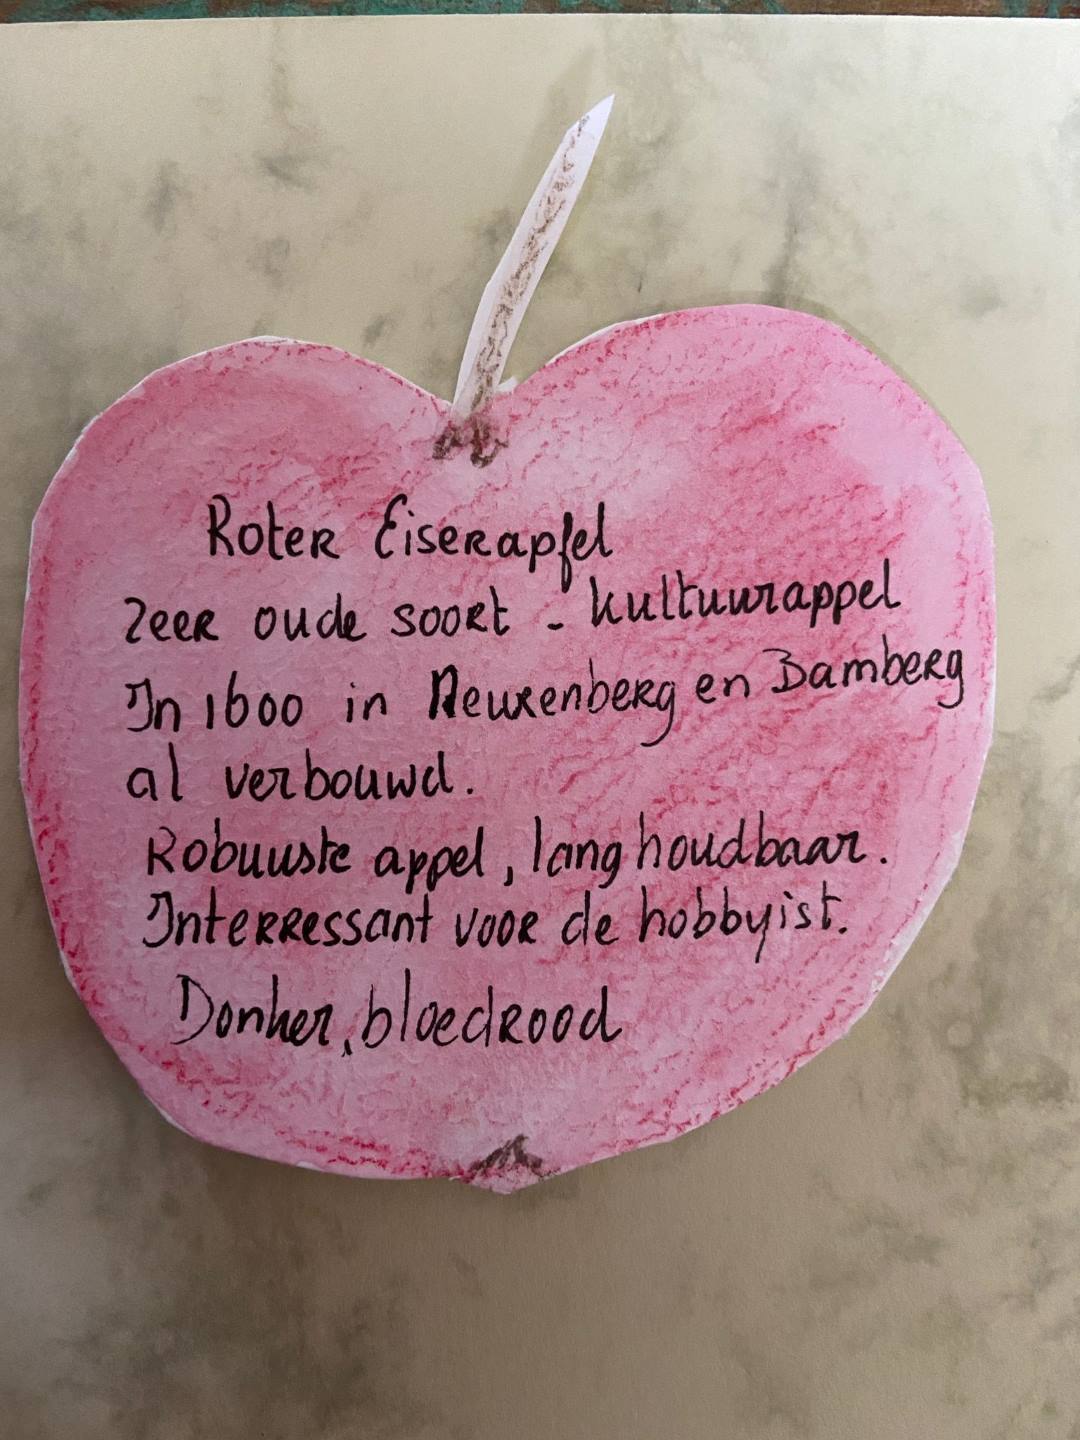 Roter Eiserapfel
Zeer oude soort - kultuurappel
In 1600 in Neurenberg en Bamberg
al verbouwd.
Robuuste appel, lang houdbaar.
Interressant voor de hobbyist.
Donker, bloedrood